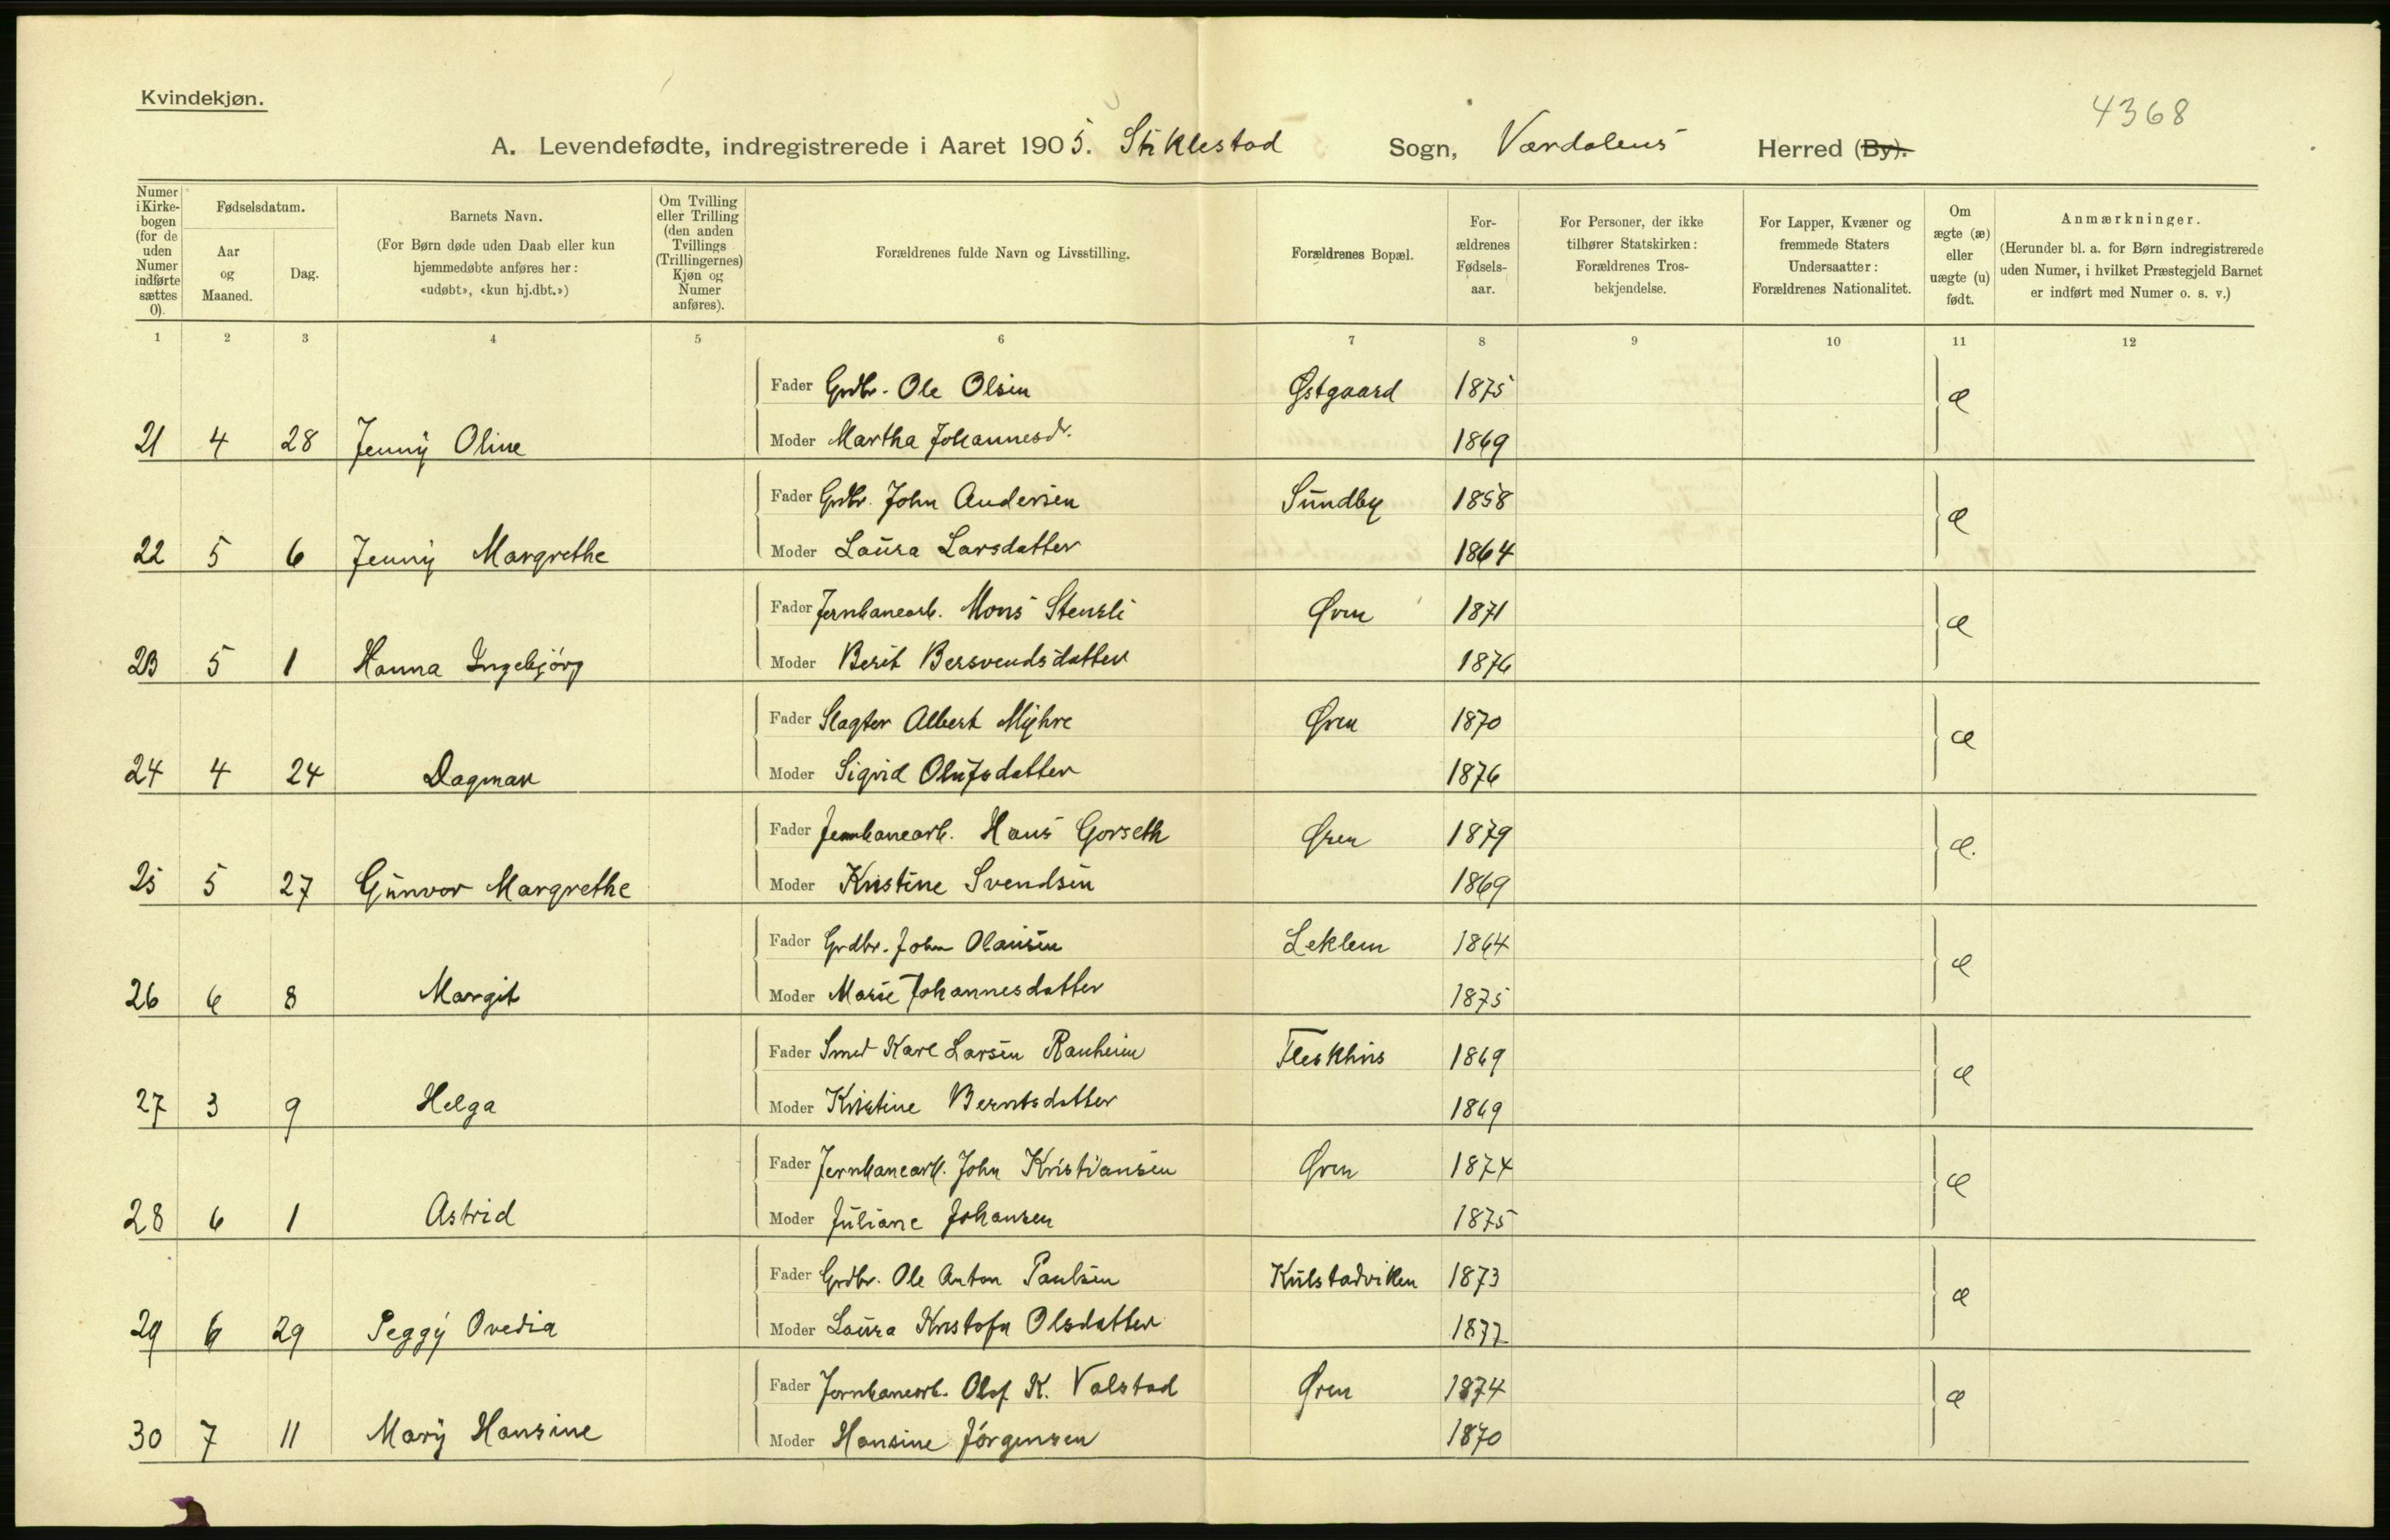 Kvindekjøn.
4368
A. Levendefødte, indregistrerede i Aaret 1905. Stiklestad Sogn, Værdalens Herred (By).
Numer i Kirke-bogen (for de uden Numer indførte sættes 0).
Fødselsdatum.
Aar og Maaned.
Dag.
Barnets Navn.
(For Børn døde uden Daab eller kun hjemmedøbte anføres her: «udøbt», «kun hj.dbt.»)
Om Tvilling eller Trilling (den anden Tvillings (Trillingernes) Kjøn og Numer anføres).
Forældrenes fulde Navn og Livsstilling.
Forældrenes Bopæl.
For-ældrenes Fødsels-aar.
For Personer, der ikke tilhører Statskirken: Forældrenes Tros-bekjendelse.
For Lapper, Kvæner og fremmede Staters Undersaatter: Forældrenes Nationalitet.
Om ægte (æ) eller uægte (u) født.
Anmærkninger.
(Herunder bl. a. for Børn indregistrerede uden Numer, i hvilket Præstegjeld Barnet er indført med Numer o. s. v.)
1 2 3 4 5 6 7 8 9 10 11 12
Fader Grdbr. Ole Olsen Østgaard 1875 æ
21 4 28 Jenny Oline Moder Martha Johannesd. 1869
Fader Grdbr. John Andersen Sundby 1858 æ
22 5 6 Jenny Margrethe Moder Laura Larsdatter 1864
Fader Jernbanearb. Mons Stensli Øren 1871 æ
23 5 1 Hanna Ingebjørg Moder Berit Bersvendsdatter 1876
Fader Slagter Albert Myhre Øren 1870 æ
24 4 24 Dagmar Moder Sigrid Olufsdatter 1876
Fader Jernbanearb. Hans Gorseth Øren 1879 æ.
25 5 27 Gunvor Margrethe Moder Kristine Svendsen 1869
Fader Grdbr. John Olausen Leklem 1864 æ
26 6 8 Margit Moder Marie Johannesdatter 1875
Fader Smed Karl Larsen Ranheim Fleskhus 1869 æ
27 3 9 Helga Moder Kristine Berntsdatter 1869
Fader Jernbanearb. John Kristiansen Øren 1874 æ
28 6 1 Astrid Moder Juliane Johansen 1875
Fader Grdbr. Ole Anton Paulsen Kulstadviken 1873 æ
29 6 29 Peggy Ovedia Moder Laura Kristofa Olsdatter 1877
Fader Jernbanearb. Olof K. Valstad Øren 1874 æ
30 7 11 Mary Hansine Moder Hansine Jørgensen 1870